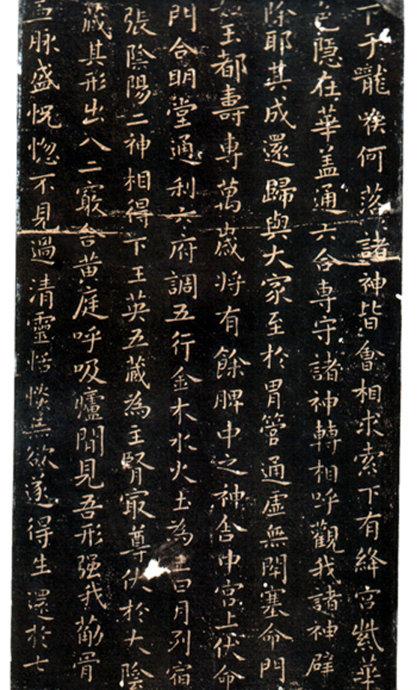 下于嚨喉何落〻諸神皆會相求索下有絳宮紫華
色隱在華蓋通六合專守諸神轉相呼觀我諸神辟
除耶其成還歸與大家至於胃管通虛無閉塞命門
如玉都壽專萬歲將有餘脾中之神舍中宮上伏命
門合明堂通利六府調五行金木水火土為王日月列宿
張陰陽二神相得下玉英五藏為主腎㝡尊伏於大陰
藏其形出入二竅舍黃庭呼吸廬間見吾形强我筋骨
血脉盛怳惚不見過清靈恬惔無欲遂得生還於七